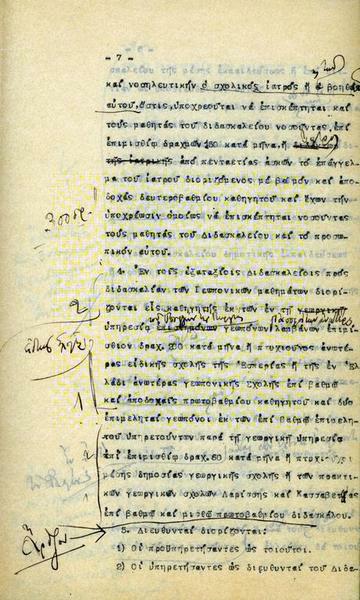 - 7 -
καί νοσηλευτικήν ὁ σχολικός ἰατρός ἤ ὁ βοηθός
αὐτοῦ, ὅστις ὑποχρεοῦται νά ἐπισκέπτηται καί
τούς μαθητάς τοῦ διδασκαλείου νοσοῦντας, ἐπί
ἐπιμισθίῳ δραχμῶν 160 κατά μῆνα, ἤ
τῆς ἰατρικῆς ἀπό πενταετίας ἀσκῶν τό ἐπάγγελ-
μα τοῦ ἰατροῦ διοριζόμενος μέ βαθμόν καί ἀπο-
δοχάς δευτεροβαθμίου καθηγητοῦ καί ἔχων τήν
ὑποχρέωσιν ὁμοίως νά ἐπισκέπτηται νοσοῦντας
τούς μαθητάς τοῦ Διδασκαλείου καί τό προσω-
πικόν αὐτοῦ.
300 δρ.
4. Ἐν τοῖς ἑξαταξίοις Διδασκαλείοις πρός
διδασκαλίαν τῶν Γεωπονικῶν μαθημάτων διορί-
ζονται εἷς καθηγητής ἐκ τῶν ἐν τῇ γεωργικῇ
ὑπηρεσίᾳ γεωπόνων λαμβάνων ἐπιμί-
σθιον δραχ. 200 κατά μῆνα ἤ πτυχιοῦχος ἀνωτέ-
ρας εἰδικῆς σχολῆς τῆς Ἑσπερίας ἤ τῆς ἐν Ἑλ-
λάδι ἀνωτέρας γεωπονικῆς Σχολῆς ἐπί βαθμῷ
καί ἀποδοχαῖς πρωτοβαθμίου καθηγητοῦ καί δύο
ἐπιμεληταί γεωπόνοι ἐκ τῶν ἐπί βαθμῷ ἐπιμελη-
τοῦ ὑπηρετούντων παρά τῇ γεωργικῇ ὑπηρεσίᾳ
ἐπί ἐπιμισθίῳ δραχ. 80 κατά μῆνα ἤ πτυχιοῦχοι
μέσης δημοσίας γεωργικῆς σχολῆς ἤ τῶν πρακτι-
κῶν γεωργικῶν σχολῶν Λαρίσσης καί Κασσαβετείας
ἐπί βαθμῷ καί μισθῷ πρωτοβαθμίου διδασκάλου.
5. Διευθυνταί διορίζονται:
1) Οἱ προϋπηρετήσαντες ὡς τοιοῦτοι.
2) Οἱ ὑπηρετήσαντες ὡς διευθυνταί τοῦ Διδα-